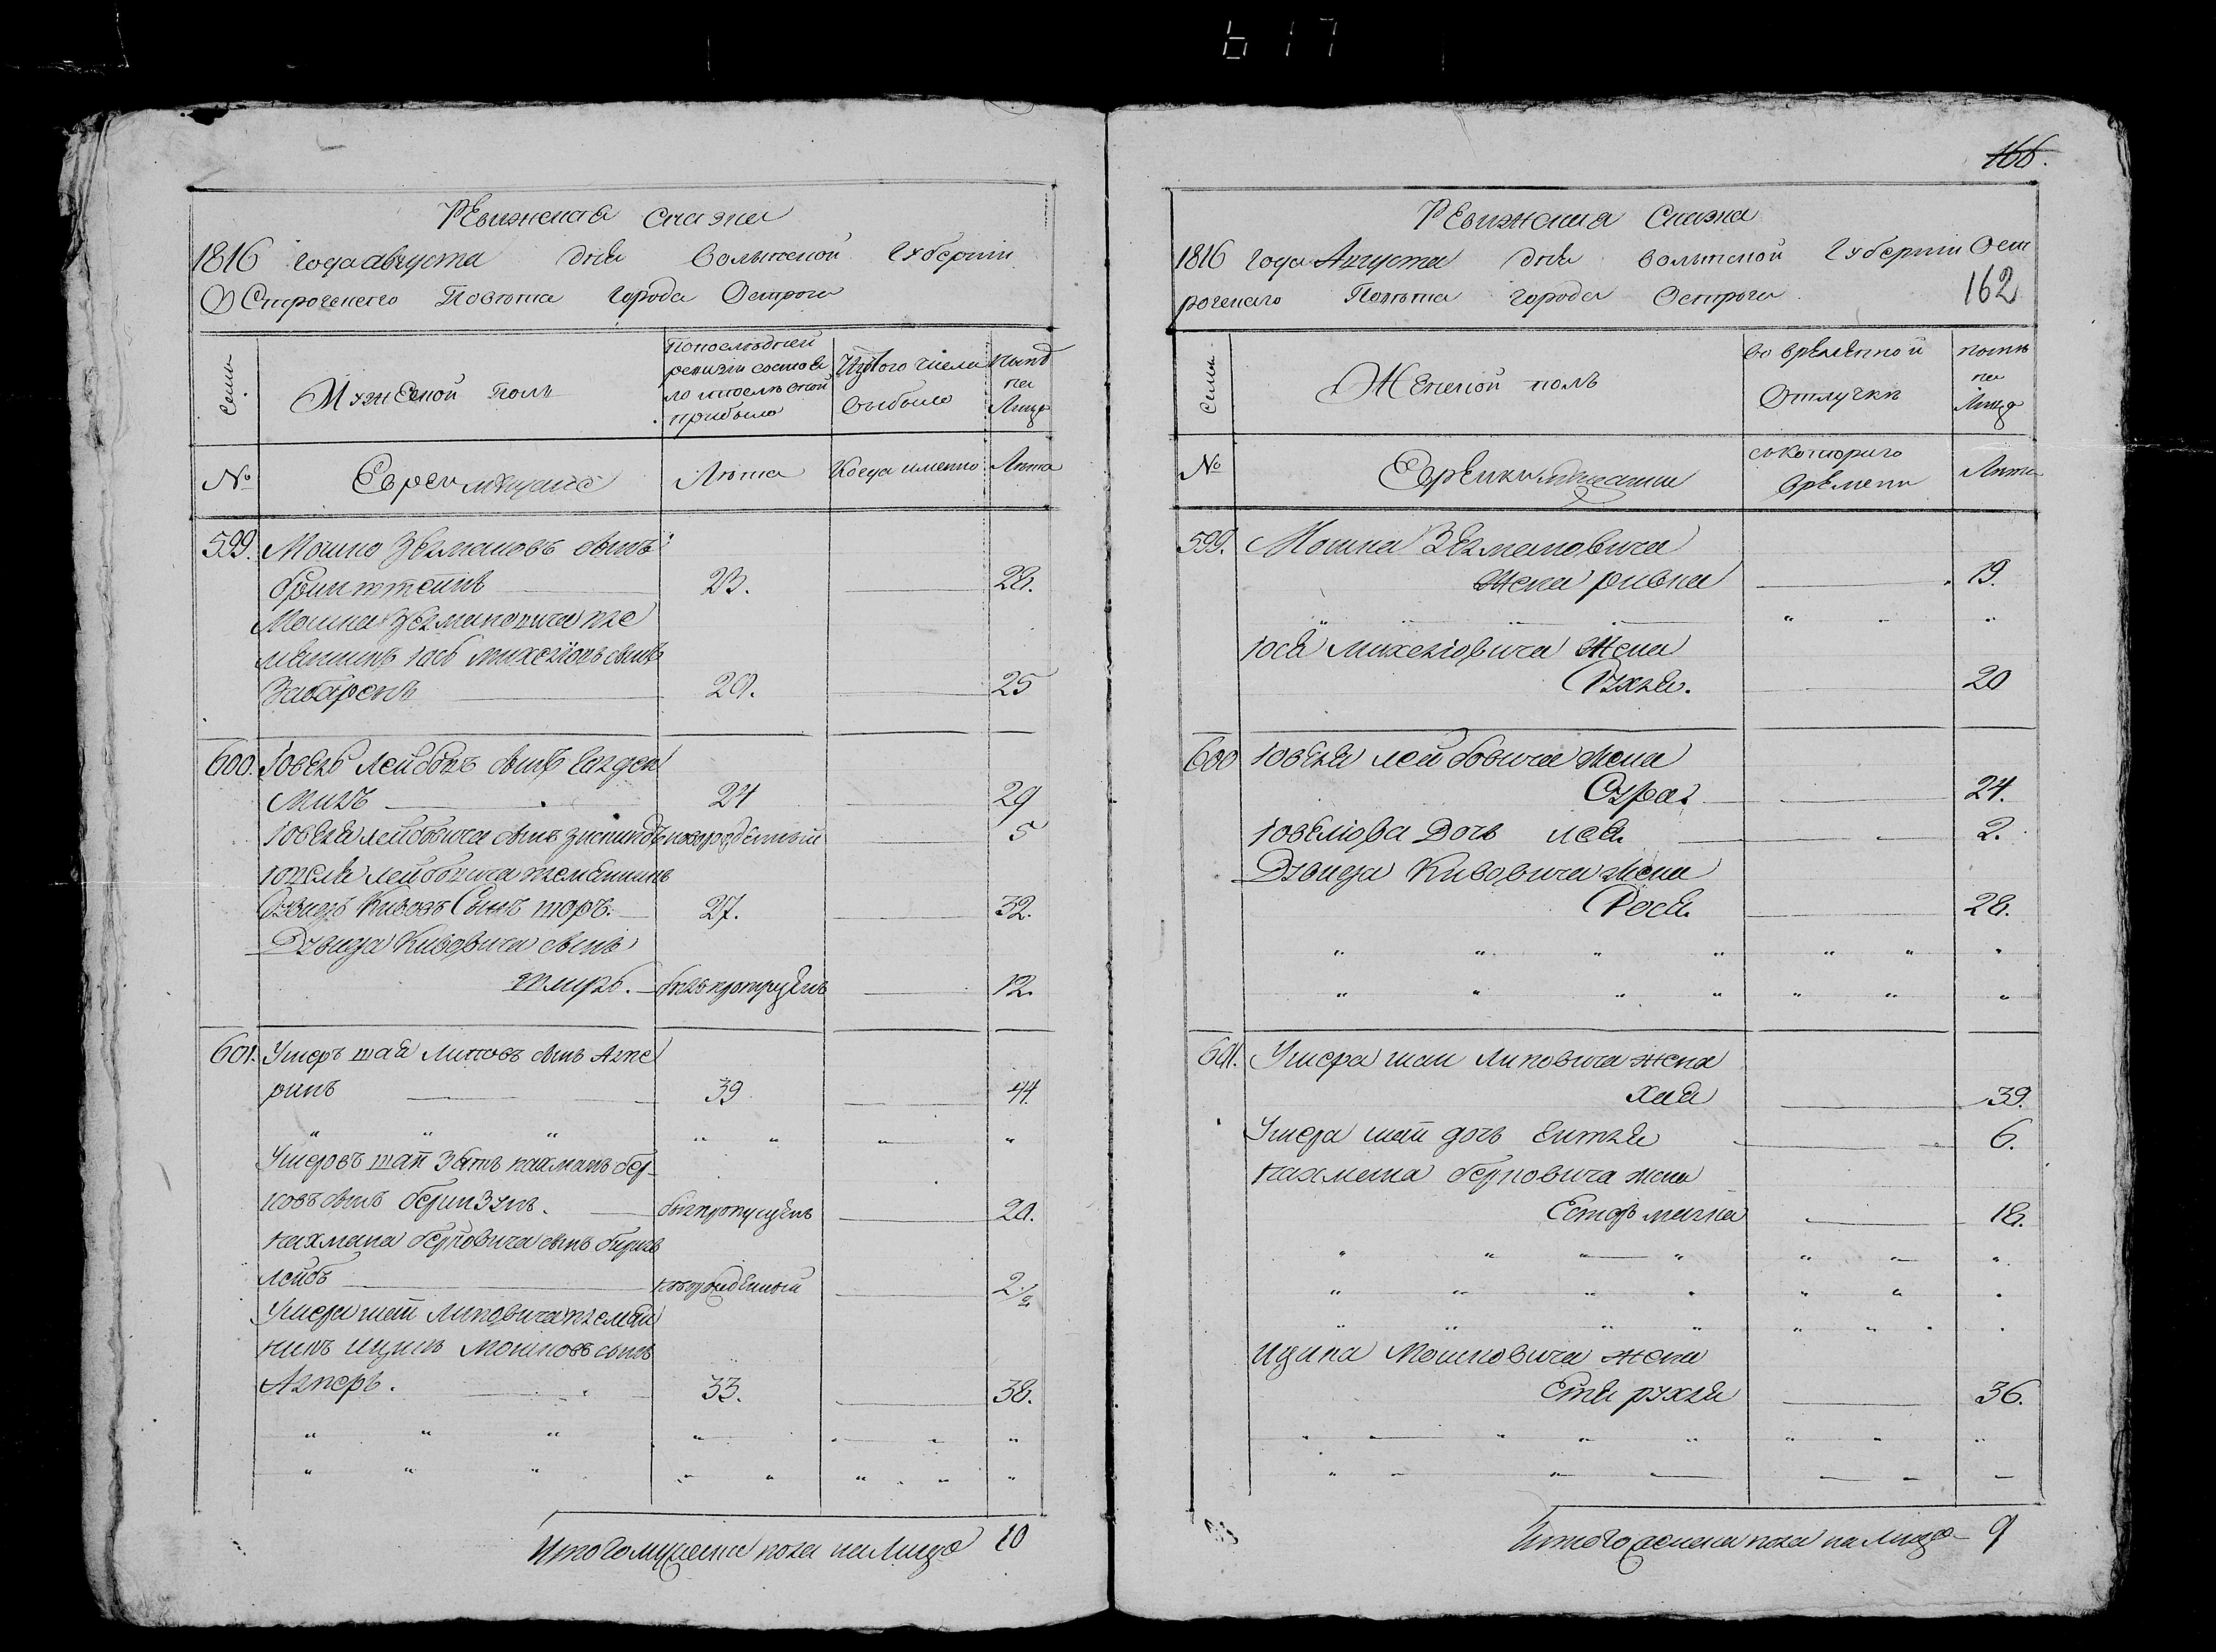 617
Ревижская Сказка
1816 года августа дня Волынской Губернии
Острогского Повета города Острога
Семьи
Мужеской полъ
По последней ревизии состоя ло и после оной прибыло
Изтого числа Выбыло
Ныне на Лицо
№
Евреи мещане
Лета
Когда именно
Лета
599. Мошко Зелмановъ сынъ
23. 28.
Мошка Зелмановича пле
менникъ Иось Михелiовъ сынъ
25
600. Иовель Лейбовъ сынъ
24 29
Иовеля Лейбовича сынъ новорожденный 5
Иовеля Лейбовича племенникъ
Кивовъ Сынъ 27. 32.
Дувида Кивовича сынъ
былъ пропущенъ 12.
601. Ушеръ шая Липовъ сынъ Алпе
ринъ 39 44.
Ушеровъ шаи зять нахманъ бер-
ковъ сынъ былъ пропущенъ 20.
нахмана берковича сынъ
лейбъ новорожденный 2 1/2
Ушера шаи Липовича племян
никъ ицикъ Мошковъ сынъ
Алперъ. 33. 38.
Итого мужеска пола на Лицо 10
166.
Ревижская Сказка
1816 года Августа дня волынской Губернии Ост
рогского Повета города Острога 162
Семьи
Женской полъ
во временной Отлучки
ныне на Лицо
№
Еврейки мещанки
съ котораго времени
Лета
599. Мошка Зелмановича
Жена ривка 19.
Иося Михелiовича Жена
Рухля. 20
600 Иовеля лейбовича Жена
Сура. 24.
Иовелiова Дочь лея 2.
Дувида Кивовича жена
Рося. 28.
601. Ушера шаи Липовича жена
хая 39.
Ушера шаи дочь Ентля 6.
нахмана берковича жена
Есторъ малка 18.
ицика Мошковича жена
Етя рухля 36.
Итого женска пола на лицо 9